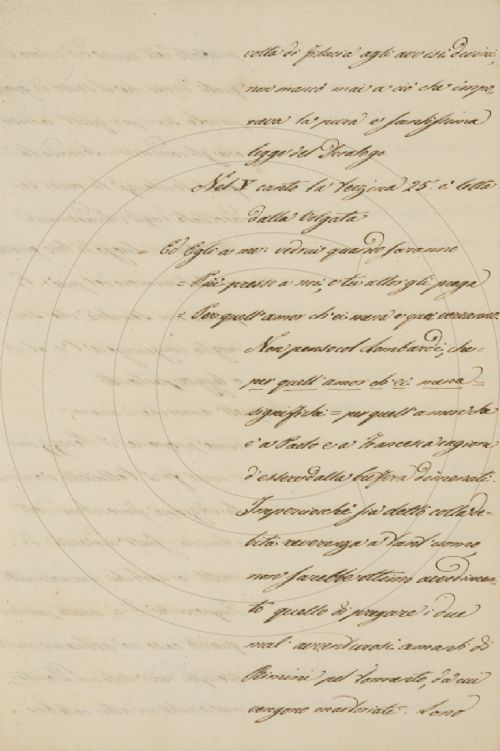 colta di fiducia agli avvisi divini,
non mancò mai a ciò che impo-
neva la pura e santissima
legge del Decalogo
Nel V canto la terzina 25. è letta
dalla Volgata
= Ed Egli a me: vedrai quando saranno
= Più presso a noi, e tu allor gli prega
= Per quell'amor ch'ei mena e quei verranno.
Non penso col Lombardi, che =
per quell'amor ch'ei mena =
significhi = per quell'amor che
è a Paolo e a Francesca cagione
d'essere dalla bufera dimenati.
Imperciocchè sia detto colla de-
bita reverenza a tant'uomo
non sarebbe ottimo accedimen-
to quello di pregare i due
mal avventurosi amanti di
Rimini pel tormento, da cui
vengono martoriati. Sono